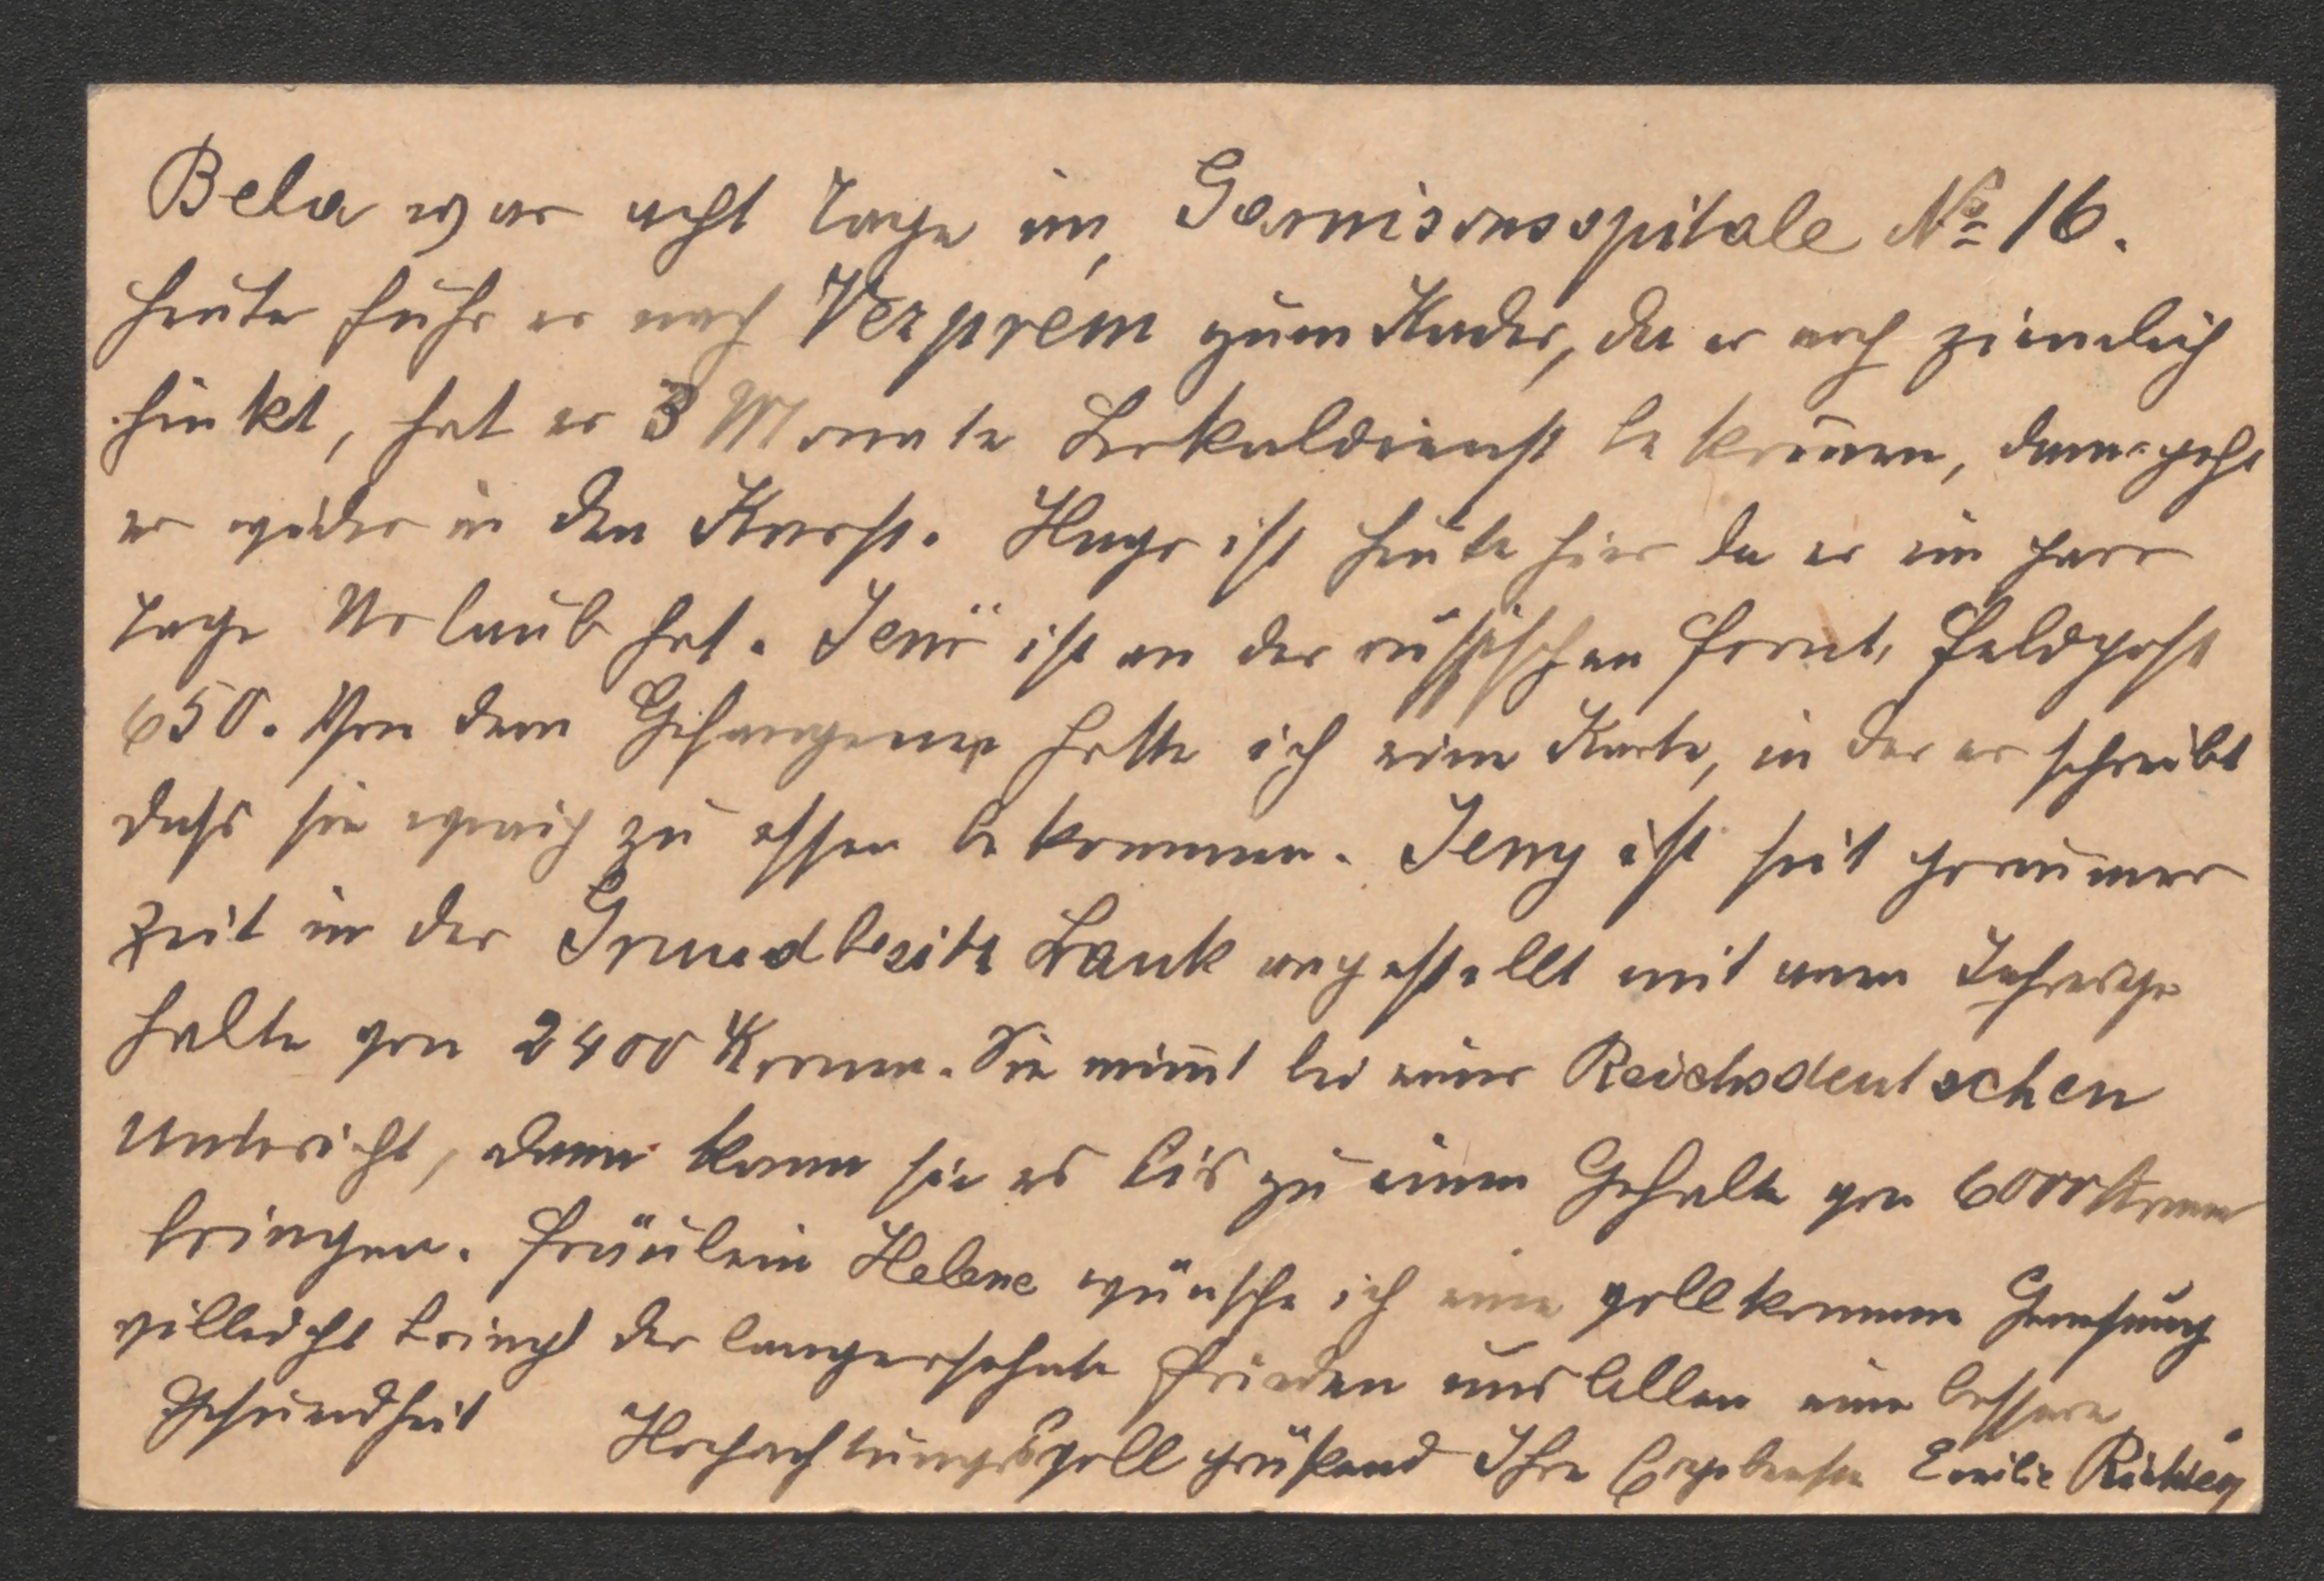 Bela war acht Tage im Garnisonsspitale No 16.
Heute fuhr er nach Vezprém zum Kader, da er noch ziemlich
hinkt, hat er 3 Monate Lokaldienst bekom̄en, dann geht
er wieder in den Karst. Hugo ist heute hier da er ein paar
Tage Urlaub hat. Jenö ist an der russischen Front, Feldpost
650. Von dem Gefangenen hatte ich eine Karte, in der er schreibt
dass sie wenig zu essen bekommen. Jeny ist seit geraumer
Zeit in der Grundbesitz Bank angestellt mit einem Jahresge
halte von 2400 Kronen. Sie nim̄t bei einer Reichsdeutschen
Unterricht, dann kann sie es bis zu einem Gehalte von 6000 Kronen
bringen. Fräulein Helene wünsche ich eine vollkommene Genesung
villeicht bringt der langersehnte Frieden uns Allen eine bessere
Gesundheit Hochachtungsvoll grüßend Ihre Ergebenste Emilie